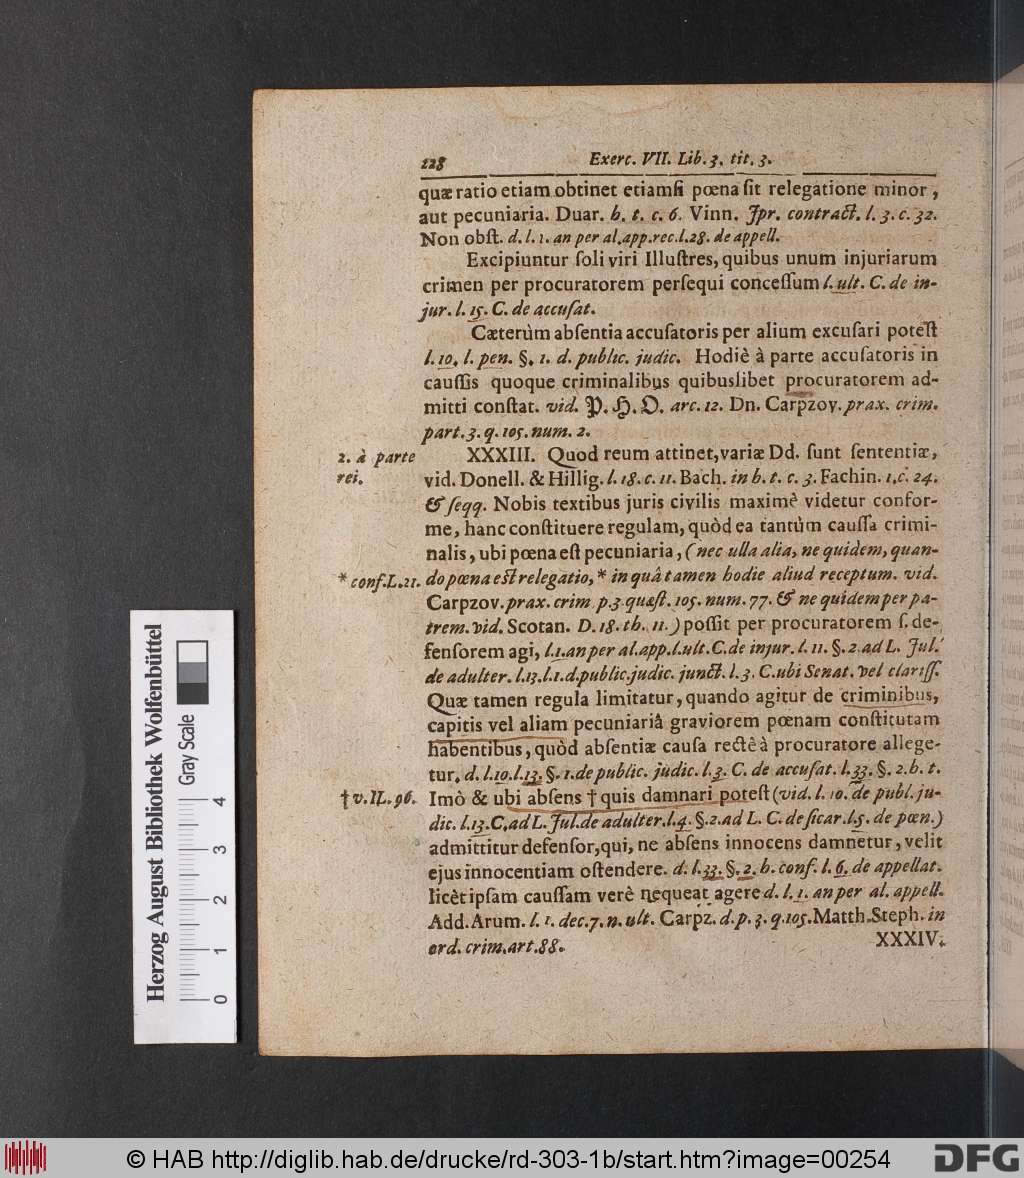 228 Exerc. VII. Lib. 3. tit. 3.
quæ ratio etiam obtinet etiamſi pœna ſit relegatione minor,
aut pecuniaria. Duar. h. t. c. 6. Vinn. Jpr. contract. l. 3. c. 32.
Non obſt. d. l. 1. an per al. app. rec. l. 28. de appell.
Excipiuntur ſoli viri Illuſtres, quibus unum injuriarum
crimen per procuratorem perſequi conceſſum l. ult. C. de in-
jur. l. 15. C. de accuſat.
Cæterùm abſentia accuſatoris per alium excuſari poteſt
l. 10. l. pen. §. 1. d. public. judic. Hodiè à parte accuſatoris in
cauſſis quoque criminalibus quibuslibet procuratorem ad-
mitti conſtat. vid. P. H. O. arc. 12. Dn. Carpzov. prax. crim.
part. 3. q. 105. num. 2.
2. à parte
rei.
XXXIII. Quod reum attinet, variæ Dd. ſunt ſententiæ,
vid. Donell. & Hillig. l. 18. c. 11. Bach. in h. t. c. 3. Fachin. 1. c. 24.
& ſeqq. Nobis textibus juris civilis maximè videtur confor-
me, hanc conſtituere regulam, quòd ea tantùm cauſſa crimi-
nalis, ubi pœna eſt pecuniaria, (nec ulla alia, ne quidem, quan-
* conf. L. 21.
do pœna eſt relegatio, * in quâ tamen hodie aliud receptum. vid.
Carpzov. prax. crim. p. 3. quæſt. 105. num. 77. & ne quidem per pa-
trem. vid. Scotan. D. 18. th. 11.) poſſit per procuratorem ſ. de-
fenſorem agi, l. 1. an per al. app. l. ult. C. de injur. l. 11. §. 2. ad L. Jul.
de adulter. l. 13. l. 1. d. public. judic. junct. l. 3. C. ubi Senat. vel clariſſ.
Quæ tamen regula limitatur, quando agitur de criminibus,
capitis vel aliam pecuniariâ graviorem pœnam conſtitutam
habentibus, quòd abſentiæ cauſa rectè à procuratore allege-
tur. d. l. 10. l. 13. §. 1. de public. judic. l. 3. C. de accuſat. l. 33. §. 2. h. t.
† v. IL. 96.
Imò & ubi abſens † quis damnari poteſt (vid. l. 10. de publ. ju-
dic. l. 13. C. ad L. Jul. de adulter. l. 4. §. 2. ad L. C. de ſicar. l. 5. de pœn.)
admittitur defenſor, qui, ne abſens innocens damnetur, velit
ejus innocentiam oſtendere. d. l. 33. §. 2. h. conf. l. 6. de appellat.
licèt ipſam cauſſam verè nequeat agere d. l. 1. an per al. appell.
Add. Arum. l. 1. dec. 7. n. ult. Carpz. d. p. 3. q. 105. Matth. Steph. in
ord. crim. art. 88.
XXXIV.
Herzog August Bibliothek Wolfenbüttel
Gray Scale
0 1 2 3 4
© HAB http://diglib.hab.de/drucke/rd-303-1b/start.htm?image=00254
DFG